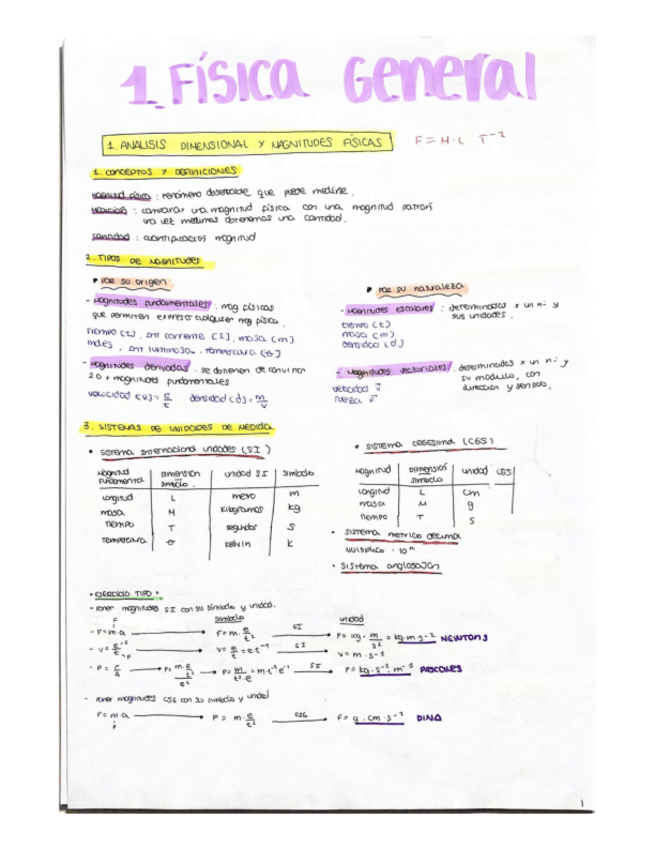 1. Física General
1. ANALISIS DIMENSIONAL Y MAGNITUDES FÍSICAS
F = M · L T⁻²
1. CONCEPTOS Y DEFINICIONES
MAGNITUD FÍSICA : fenómeno observable que puede medirse.
MEDICIÓN : comparar una magnitud física con una magnitud patrón
una vez medimos obtenemos una cantidad.
CANTIDAD : magnitud
2. TIPOS DE MAGNITUDES
POR SU ORIGEN
- Magnitudes fundamentales : mag físicas
que permiten expresar cualquier mag física.
tiempo (t), int corriente (I), masa (m)
moles, int luminosa, temperatura (θ)
- Magnitudes derivadas : se obtienen de
2 o + magnitudes fundamentales
velocidad (v) = e/t densidad (d) = m/v
POR SU naturaleza
- Magnitudes escalares : determinadas x un nº y
sus unidades.
tiempo (t)
masa (m)
densidad (d)
- Magnitudes vectoriales : determinadas x un nº y
su módulo, con
dirección y sentido.
velocidad v
fuerza F
3. SISTEMAS DE UNIDADES DE MEDIDA
• SISTEMA Internacional unidades (SI)
Magnitud Fundamental Dimensión símbolo unidad SI símbolo
longitud L metro m
masa M kilogramos kg
tiempo T segundos s
Temperatura θ kelvin K
• SISTEMA cegesimal (CGS)
Magnitud Dimensión símbolo unidad CGS
longitud L cm
masa M g
tiempo T s
• SISTEMA metrico decimal
· 10ⁿ
• SISTEMA anglosajon
• EJERCICIO TIPO •
- Poner magnitudes SI con su símbolo y unidad.
símbolo unidad
- F = m·a → F = m · e/t² SI → F = kg · m/s² = kg·m·s⁻² NEWTONS
- v = e/t → v = e/t = e·t⁻¹ SI → v = m·s⁻¹
- P = F/s → P = m·e/t² / e² → P = m/t²·e = m·t⁻²·e⁻¹ SI → P = kg·s⁻²·m⁻¹ PASCALES
- Poner magnitudes CGS con su símbolo y unidad
F = m·a → F = m · e/t² CGS → F = g · cm · s⁻² DINA
1